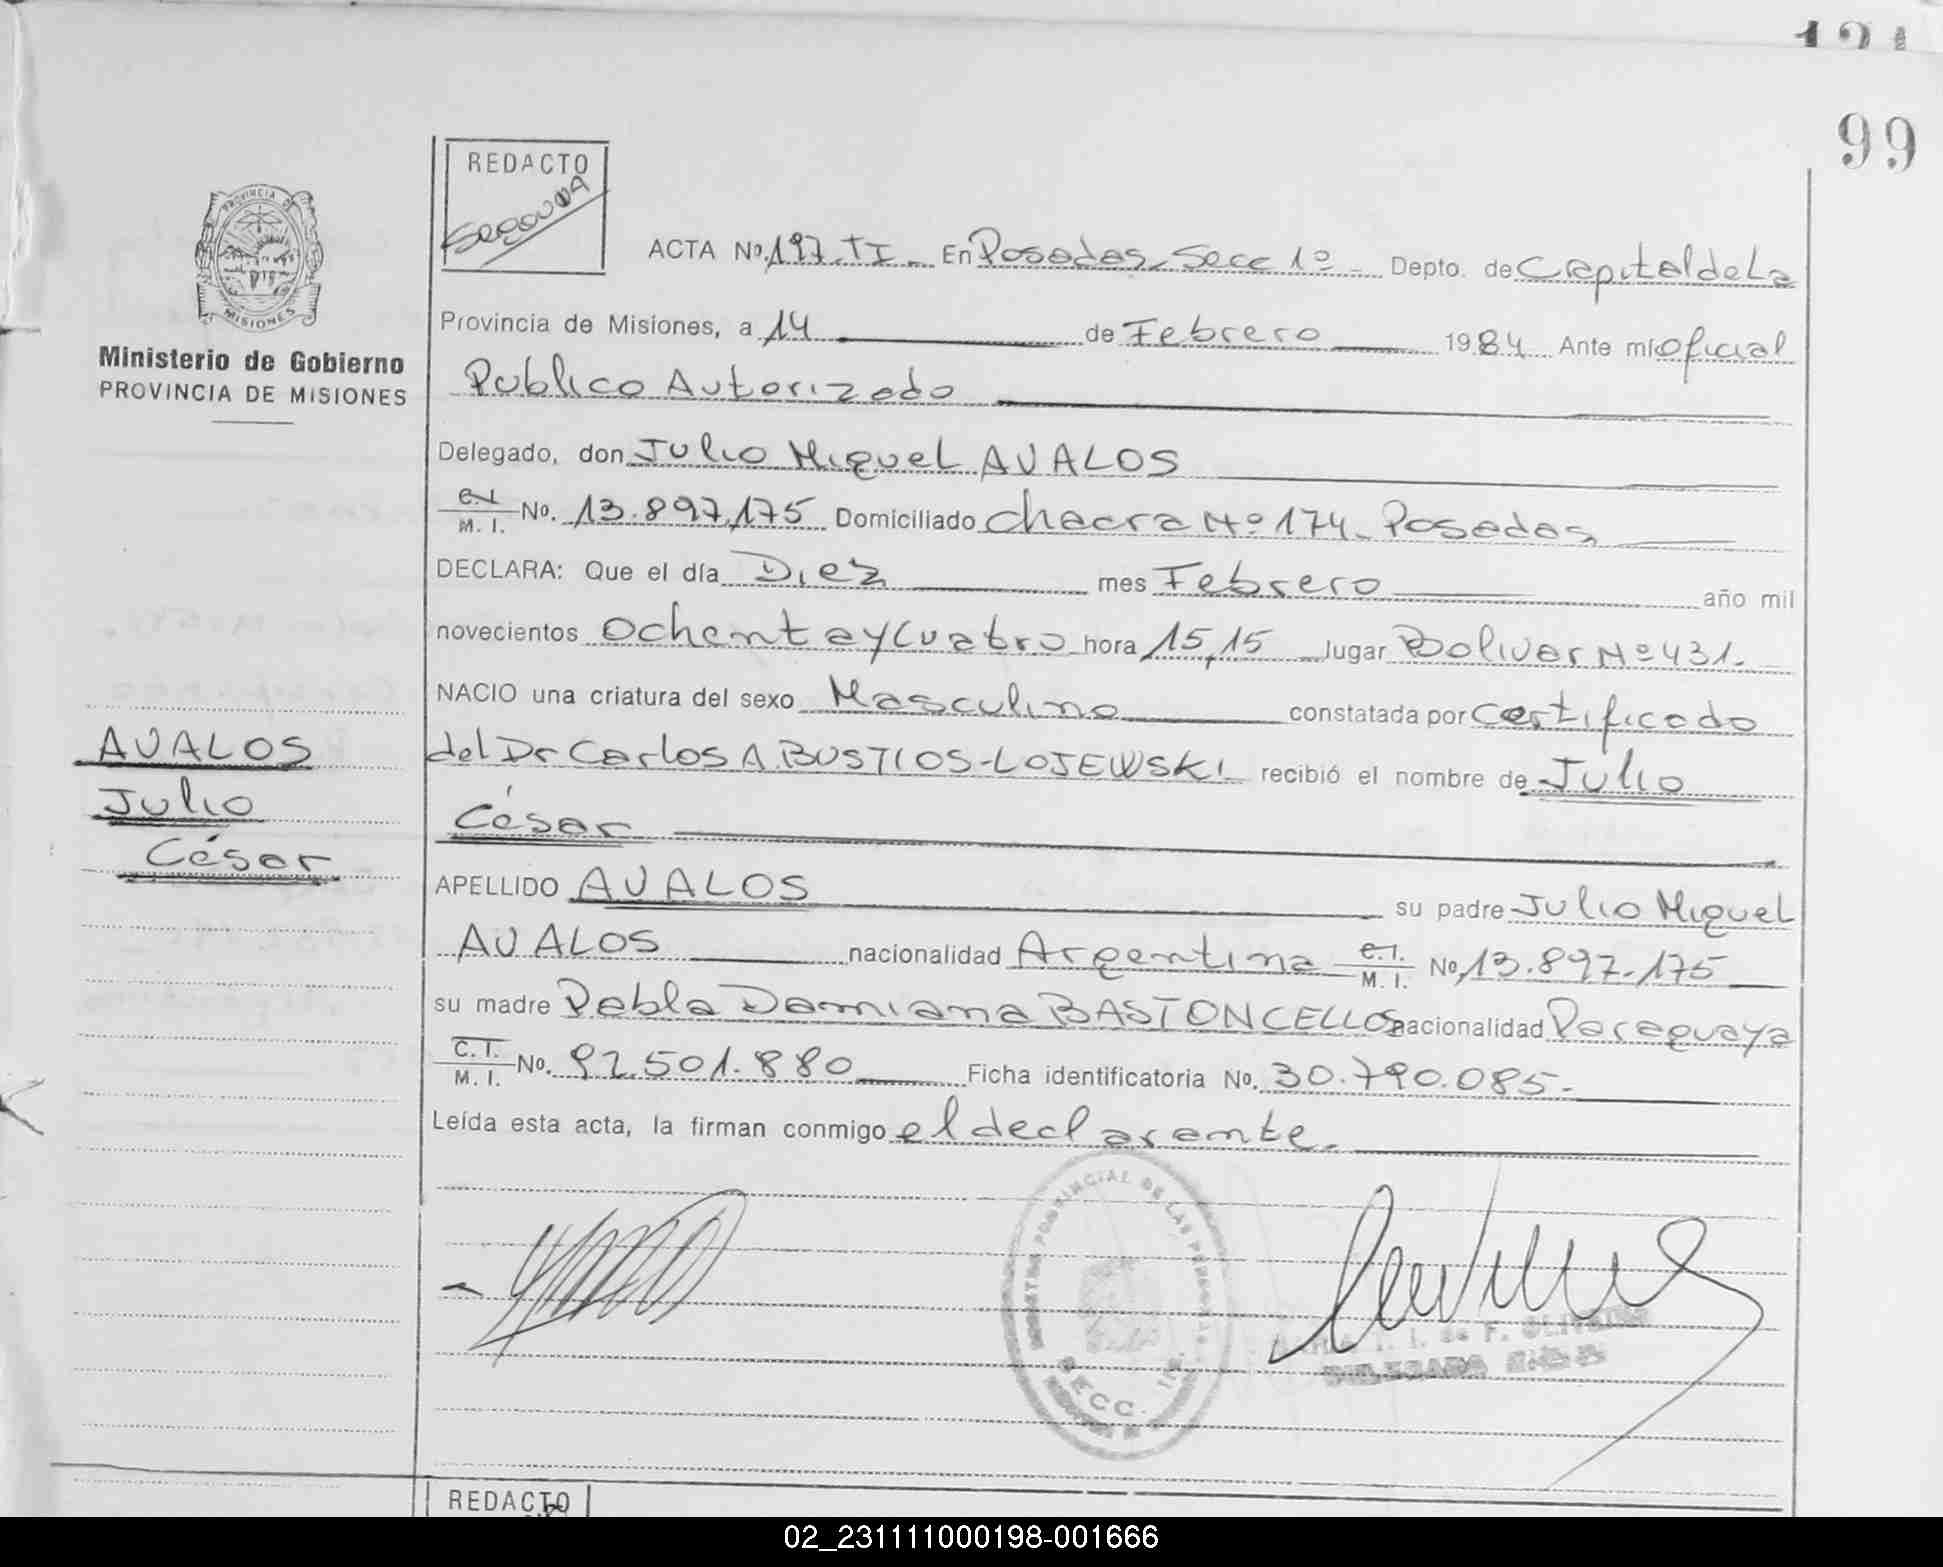 121
99
REDACTO
SEGOVIA
PROVINCIA DE
MISIONES
Ministerio de Gobierno
PROVINCIA DE MISIONES
ACTA No. 197. TI. En Posadas, Secc 1º Depto. de Capital de La
Provincia de Misiones, a 14 de Febrero 1984 Ante mi oficial
Publico Autorizado
Delegado, don Julio Miguel AVALOS
C.I. M. I. No. 13.897.175 Domiciliado Chacra Nº 174. Posadas
DECLARA: Que el día Diez mes Febrero año mil
novecientos Ochenta y Cuatro hora 15,15 lugar Bolivar Nº 431.
NACIO una criatura del sexo Masculino constatada por Certificado
AVALOS
del Dr Carlos A BUSTIOS-LOJEWSKI recibió el nombre de Julio
Julio
César
César
APELLIDO AVALOS su padre Julio Miguel
AVALOS nacionalidad Argentina C.I. M. I. No. 13.897.175
su madre Pabla Damiana BASTONCELLOS nacionalidad Paraguaya
C.I. M. I. No. 92.501.880 Ficha identificatoria No. 30.790.085.
Leída esta acta, la firman conmigo el declarante.
PROVINCIAL DE LAS PERSONAS
SECC. 1ª
I. de F. OLIVEIRA
DELEGADA
REDACTO
02_231111000198-001666